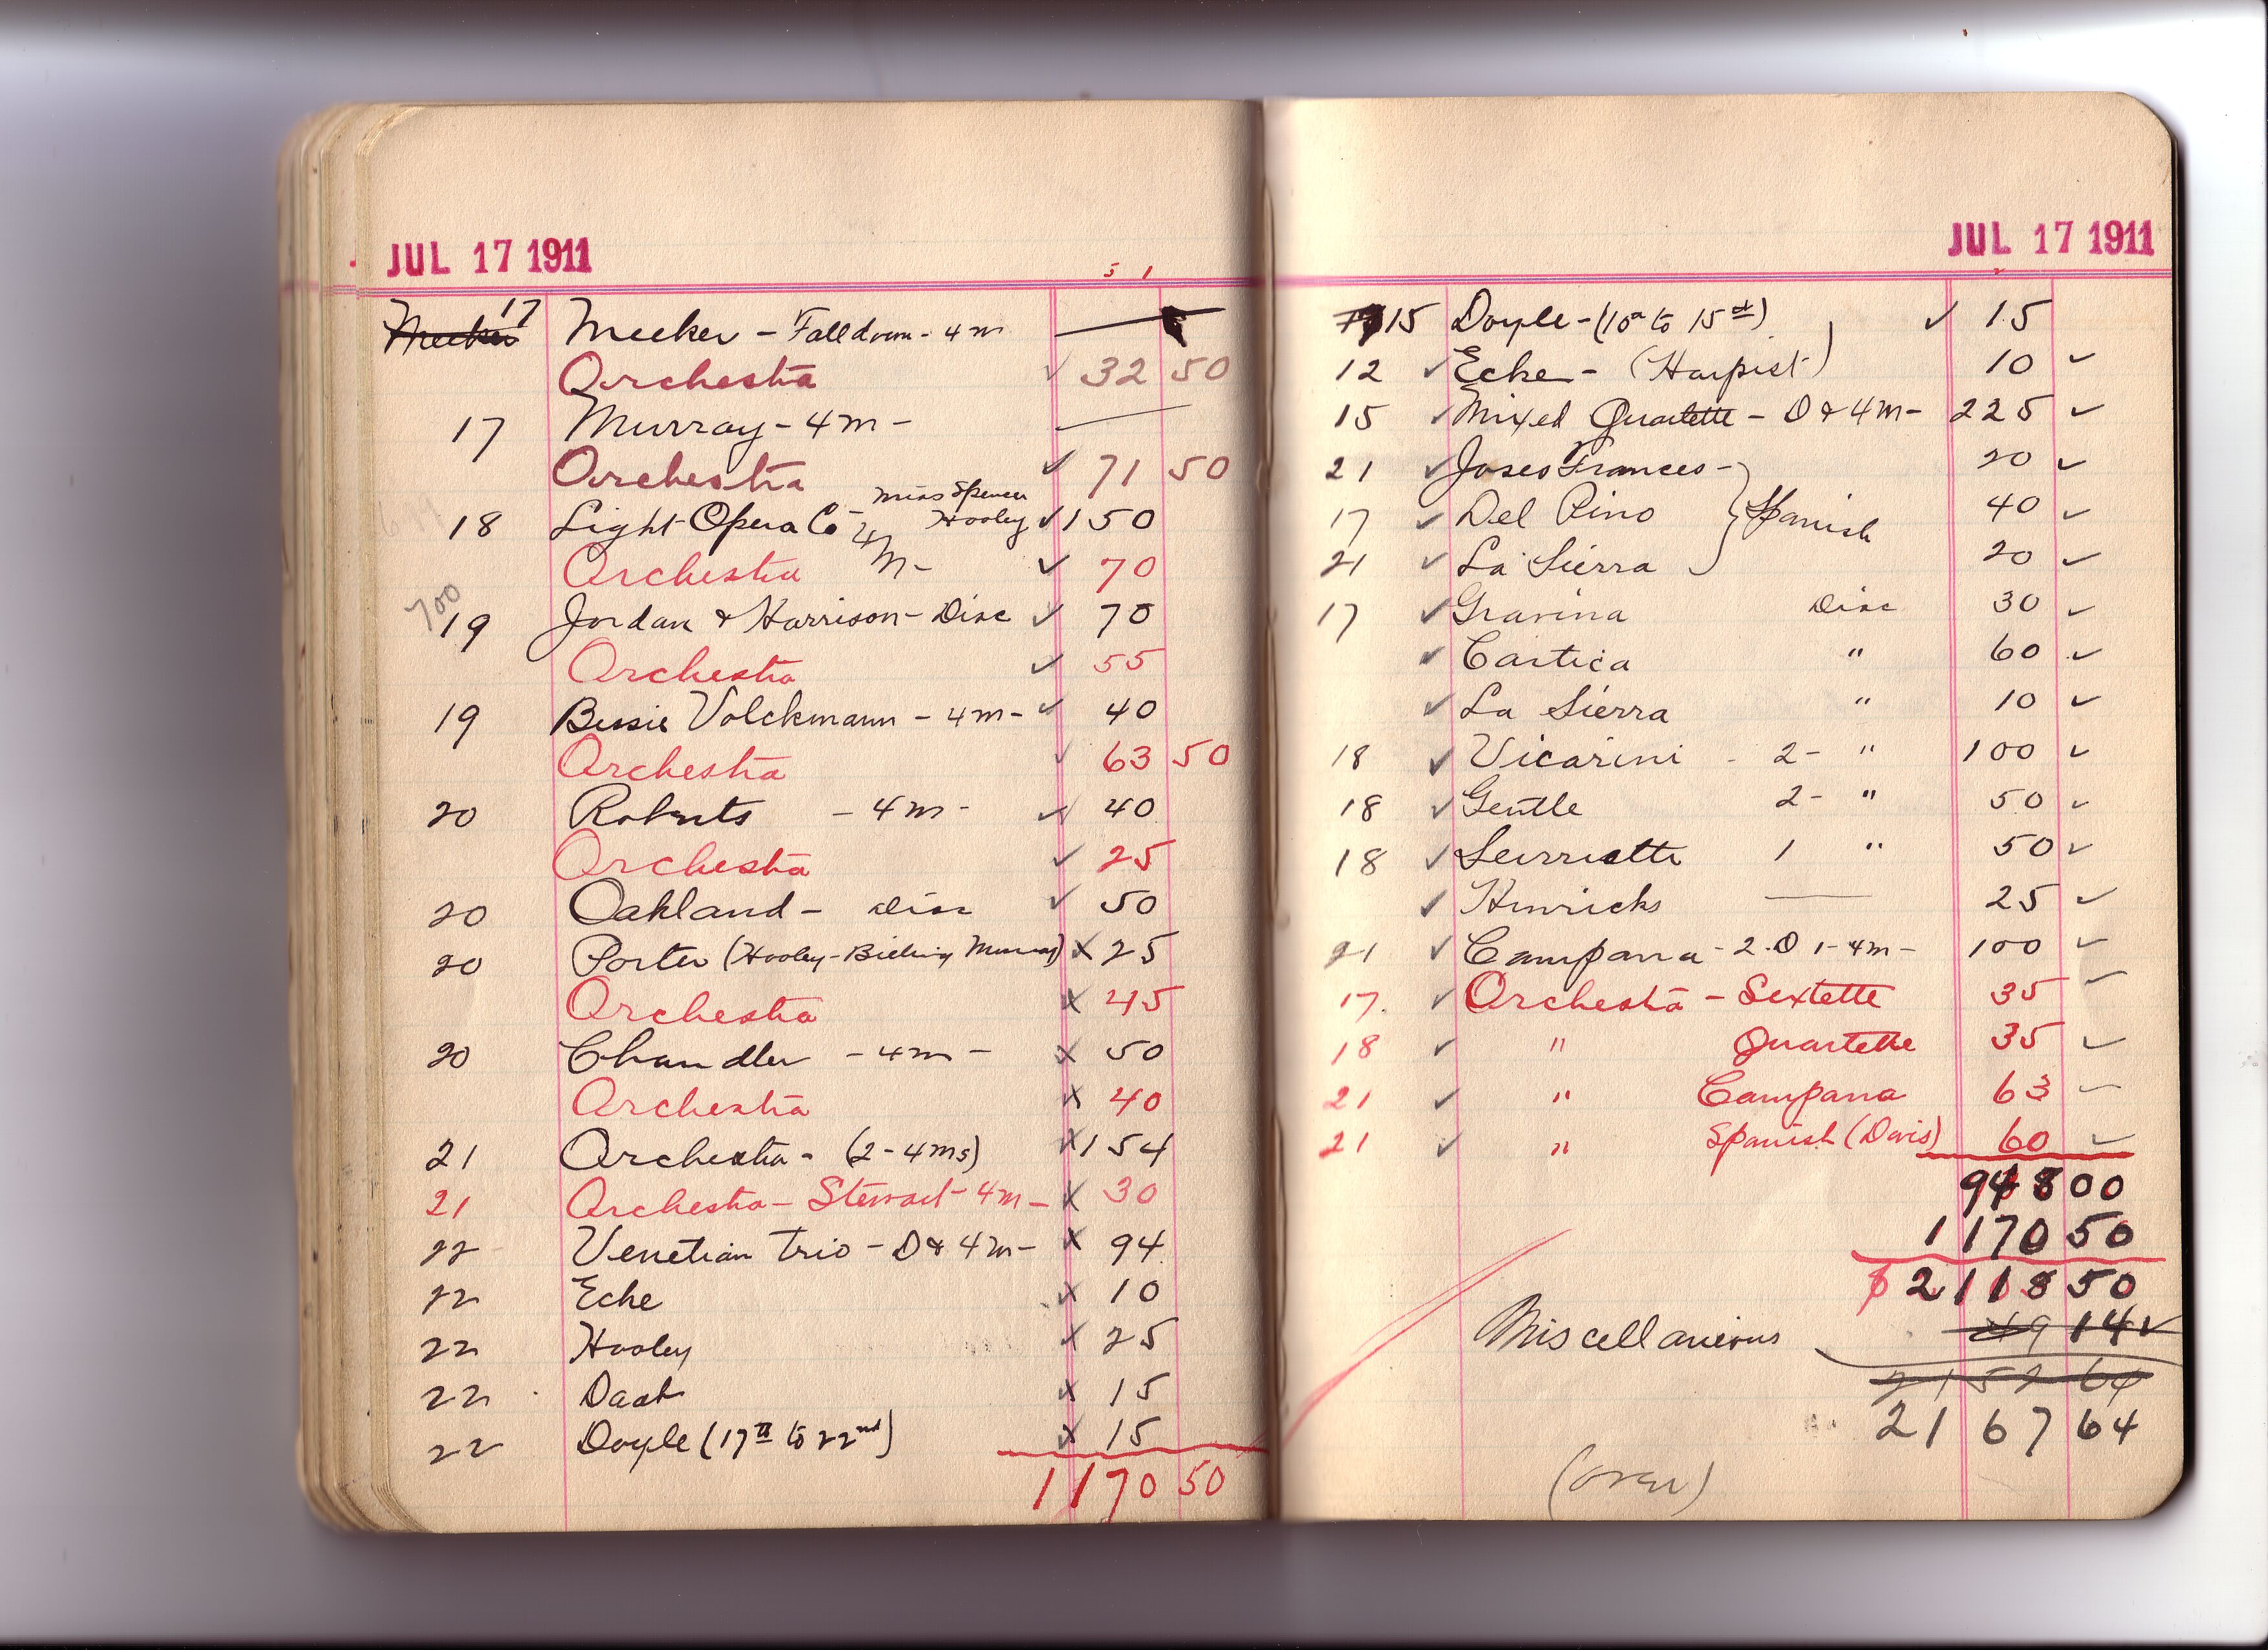 JUL 17 1911
5 1
17 Meeker - Falldown - 4m
Orchestra ✓ 32 50
17 Murray - 4m -
Orchestra ✓ 71 50
Miss Spencer
18 Light Opera Co - 4M - Hooley ✓ 150
Orchestra ✓ 70
700
19 Jordan & Harrison - Disc ✓ 70
Orchestra ✓ 55
19 Bessie Volckmann - 4m - ✓ 40
Orchestra ✓ 63 50
20 Roberts - 4m - ✓ 40
Orchestra ✓ 25
20 Oakland - Disc ✓ 50
20 Porter (Hooley - Bieling Murray) x 25
Orchestra x 45
20 Chandler - 4m - x 50
Orchestra x 40
21 Orchestra - (2 - 4ms) x 154
21 Orchestra - Stewart - 4m - x 30
22 Venetian Trio - D & 4m - x 94
22 Eche x 10
22 Hooley x 25
22 Daab x 15
22 Doyle (17th to 22nd) x 15
1170 50
JUL 17 1911
15 Doyle - (10th to 15th) ✓ 15
12 ✓ Eche - (Harpist) 10 ✓
15 ✓ Mixed Quartette - D & 4m - 225 ✓
21 ✓ Joses Frances - 20 ✓
17 ✓ Del Pino } Spanish 40 ✓
21 ✓ La Sierra 20 ✓
17 ✓ Gravina Disc 30 ✓
✓ Cartica " 60 ✓
✓ La Sierra " 10 ✓
18 ✓ Vicarini - 2 - " 100 ✓
18 ✓ Gentle 2 - " 50 ✓
18 ✓ 1 " 50 ✓
✓ Hinricks — 25 ✓
21 ✓ Campana - 2 - D 1 - 4m - 100 ✓
17 ✓ Orchestra - Sextette 35 ✓
18 ✓ " Quartette 35 ✓
21 ✓ " Campana 63 ✓
21 ✓ " Spanish (Davis) 60 ✓
948 00
1170 50
$ 2118 50
Miscellaneous 49 14 ✓
2152 64
2167 64
(over)